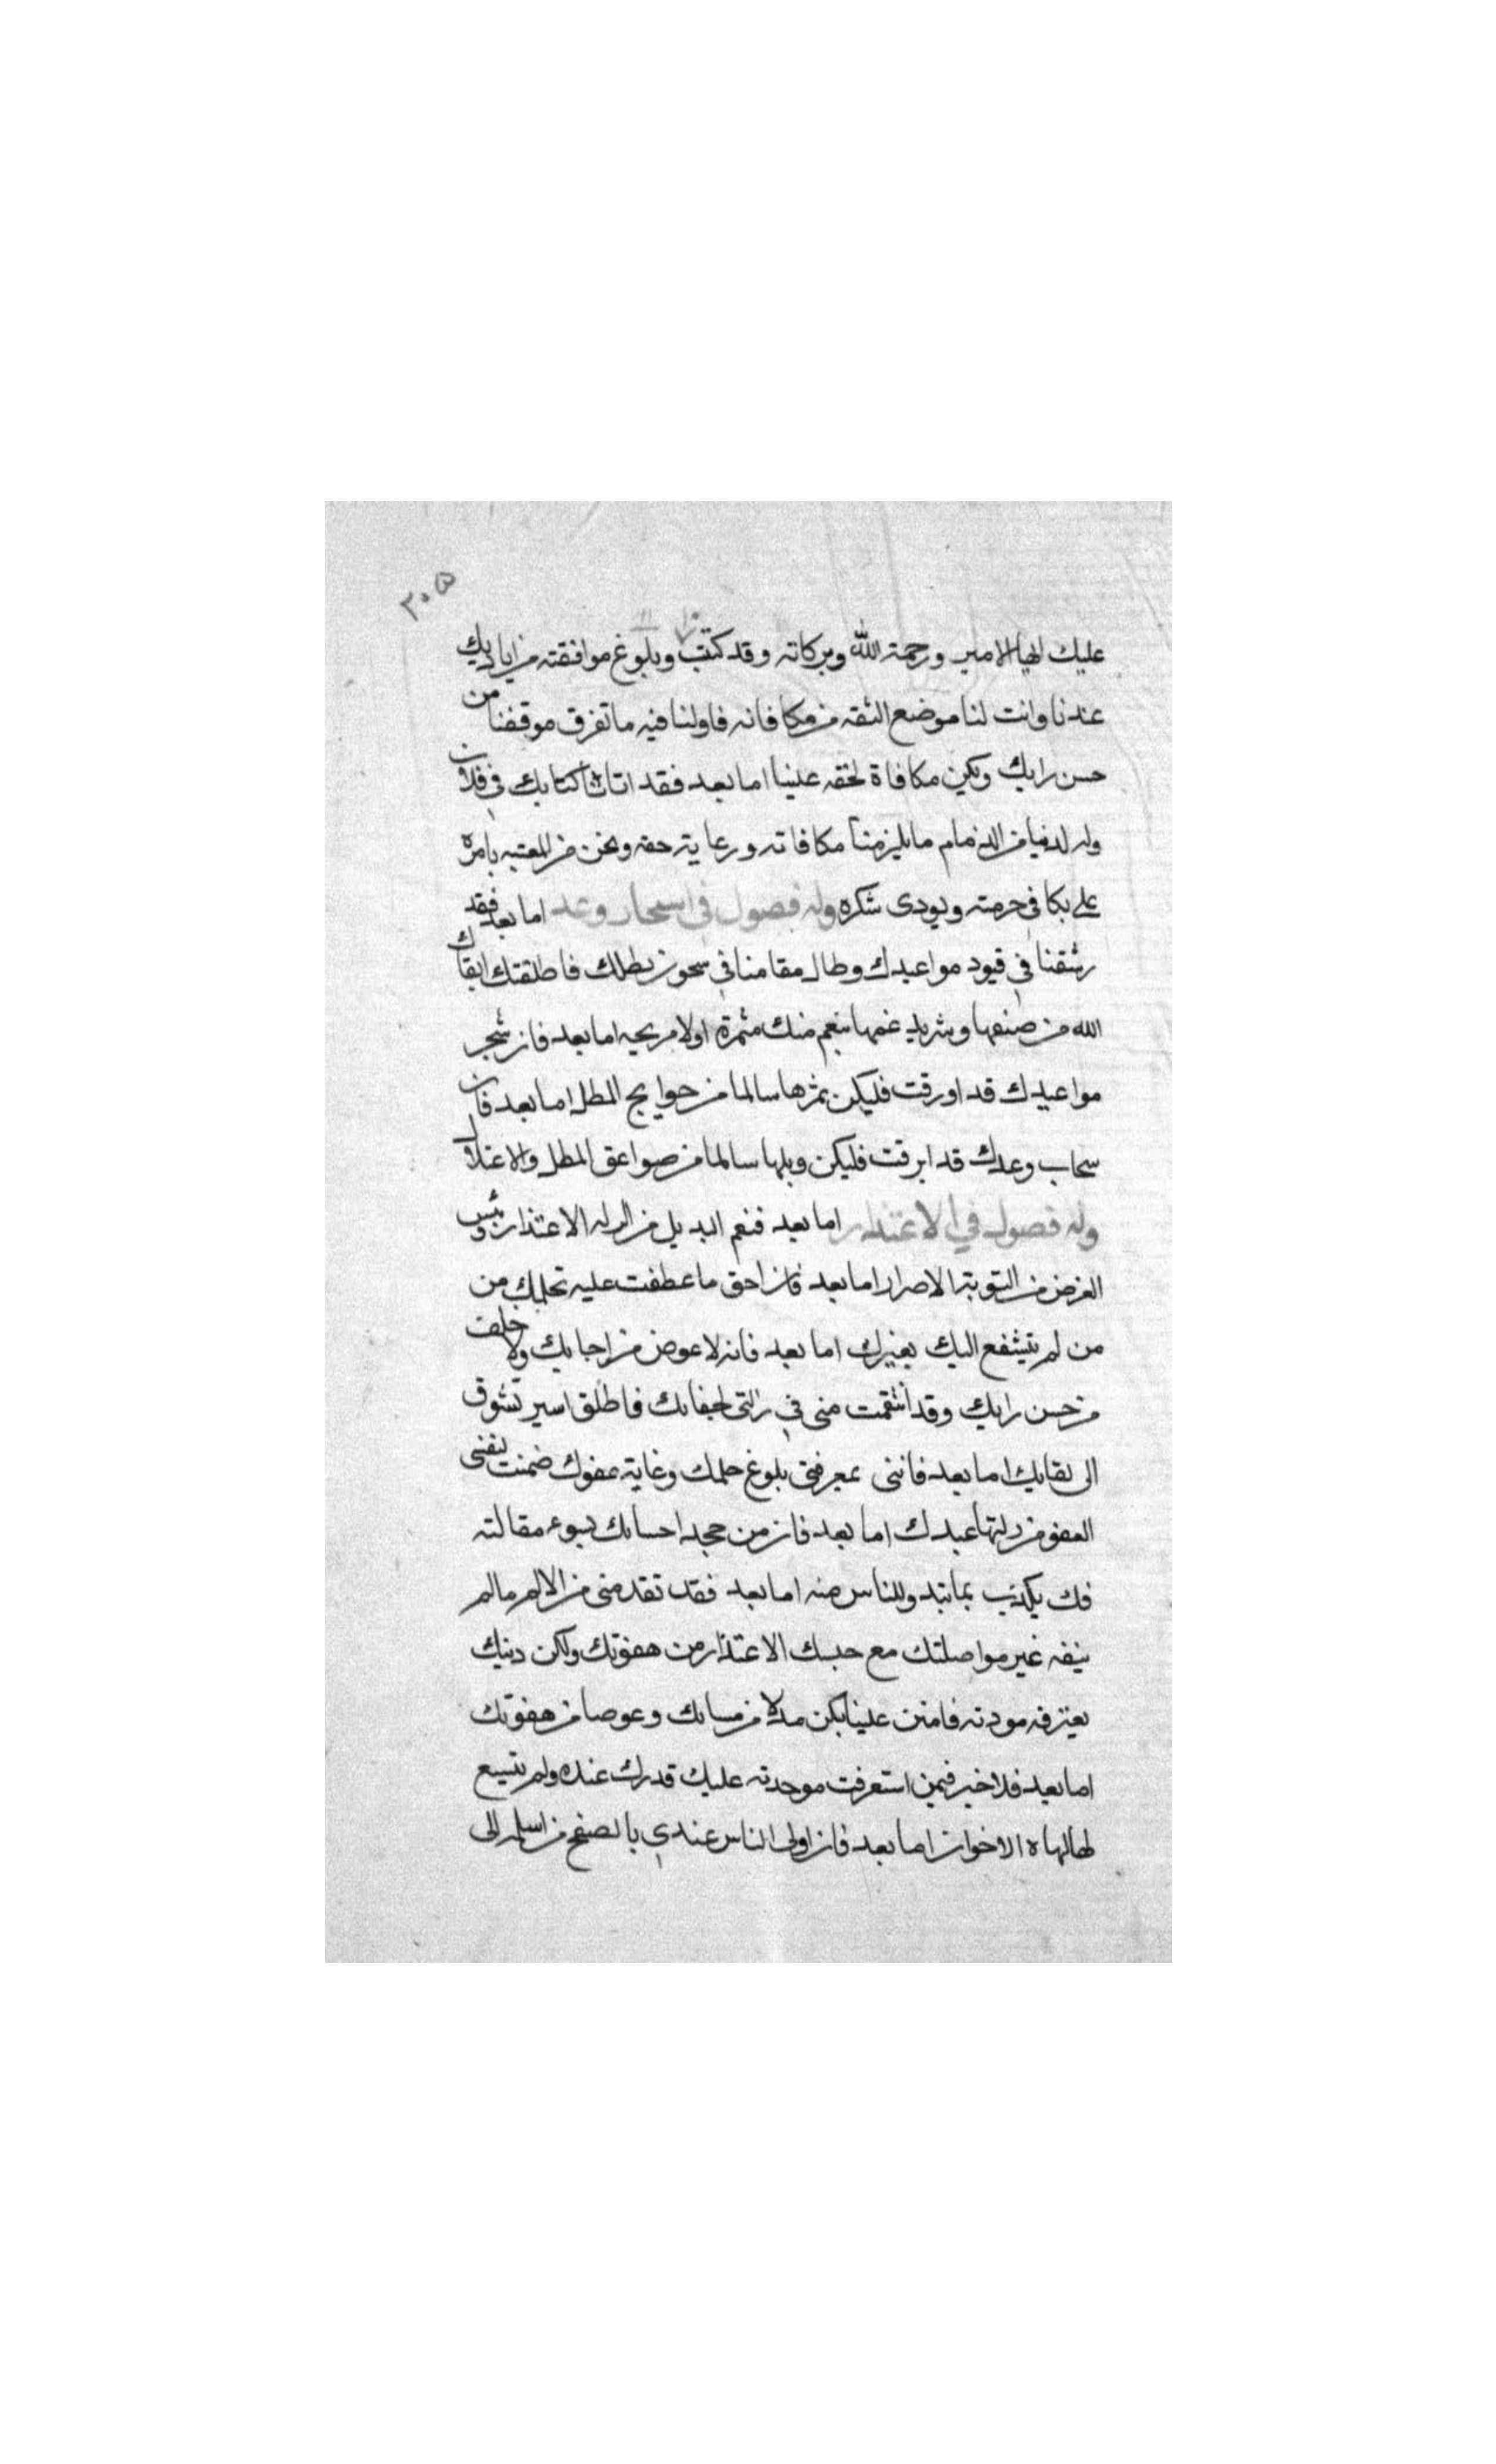 ٣٠٥
عليك ايها الامير ورحمة الله وبركاته وقد كتبت وبلوغ موافقته من اياديك
عندنا وانت لنا موضع الثقه من مكافاته فاولنا فيه ما تعرف موقفنا من
حسن رايك ويكون مكافاة لحقه علينا اما بعد فقد اتانا كتابك في فلان
وله لدينا من الذمام ما يلزمنا مكافاته ورعاية حقه ونحن من المعنيه بامره
على يكافي حرمته ويودى شكره وله فصول في استنجاز وعد اما بعد فقد
رثقنا في قيود مواعيدك وطال مقامنا في سجون مطلك فاطلقنا ابقاك
الله من ضيقها وشديد غمها بنعم منك مثمرة اولا مريحه اما بعد فان شجر
مواعيدك قد اورقت فليكن ثمرها سالما من حوايج المطل اما بعد فان
سحاب وعدك قد ابرقت فليكن وبلها سالما من صواعق المطل والاعتلال
وله فصول في الاعتذار اما بعد فنعم البديل من الزله الاعتذار وبئس
العوض من التوبة الاصرار اما بعد فان احق ما عطفت عليه بحلمك من
من لم يتشفع اليك بغيرك اما بعد فانه لا عوض من اخايك ولا خلف
من حسن رايك وقد انتقمت مني في زلتى بجفائك فاطلق اسير تشوق
الى لقايك اما بعد فانني بمعرفتي بلوغ حلمك وغاية عفوك ضمنت لنفسى
العفو من زلتها عندك اما بعد فان من جحد احسانك بسوء مقالته
فيك يكذب بما تبدو للناس منه اما بعد فقد تقدمنى من الالم ما لم
يشفه غير مواصلتك مع حبسك الاعتذار من هفوتك ولكن ذنبك
يغتفره مودته فامنن علينا يكن بدلا من مساتك وعوضا من هفوتك
اما بعد فلا خير فيمن استغرقت موجدته عليك قدرك عنده ولم يتسع
لهناة الاخوان اما بعد فان اولى الناس عندي بالصفح من اسلمه الى